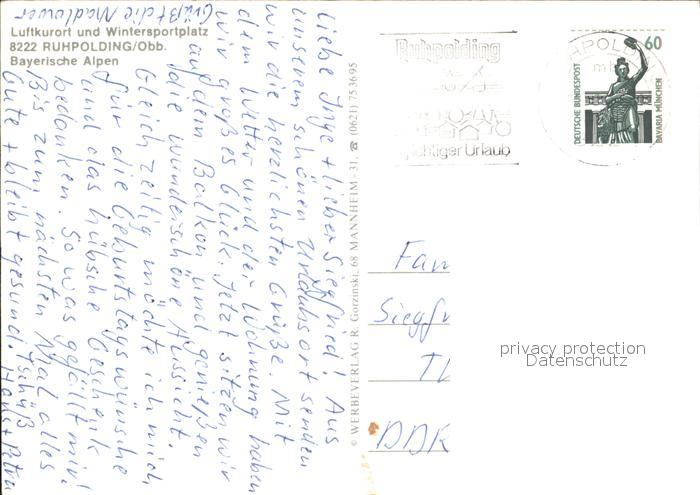 Luftkurort und Wintersportplatz
8222 RUHPOLDING/Obb.
Bayerische Alpen
Grüßt die Madlower
Liebe Inge + lieber Siegfried! Aus
unserem schönen Urlaubsort senden
wir die herzlichsten Grüße. Mit
dem Wetter und der Wohnung haben
wir großes Glück. Jetzt sitzen wir
auf dem Balkon und genießen
die wunderschöne Aussicht.
Gleichzeitig möchte ich mich
für die Geburtstagswünsche
und das hübsche Geschenk
bedanken. So was gefällt mir!
Bis zum nächsten Mal alles
Gute + bleibt gesund. Tschüß
Hans + Petra
© WERBEVERLAG R. Gorzinski, 68 MANNHEIM-31, ☎ (0621) 753695
Ruhpolding
richtiger Urlaub
HPOLD
60
DEUTSCHE BUNDESPOST
BAVARIA MÜNCHEN
Fam
Siegfr
DDR
privacy protection
Datenschutz